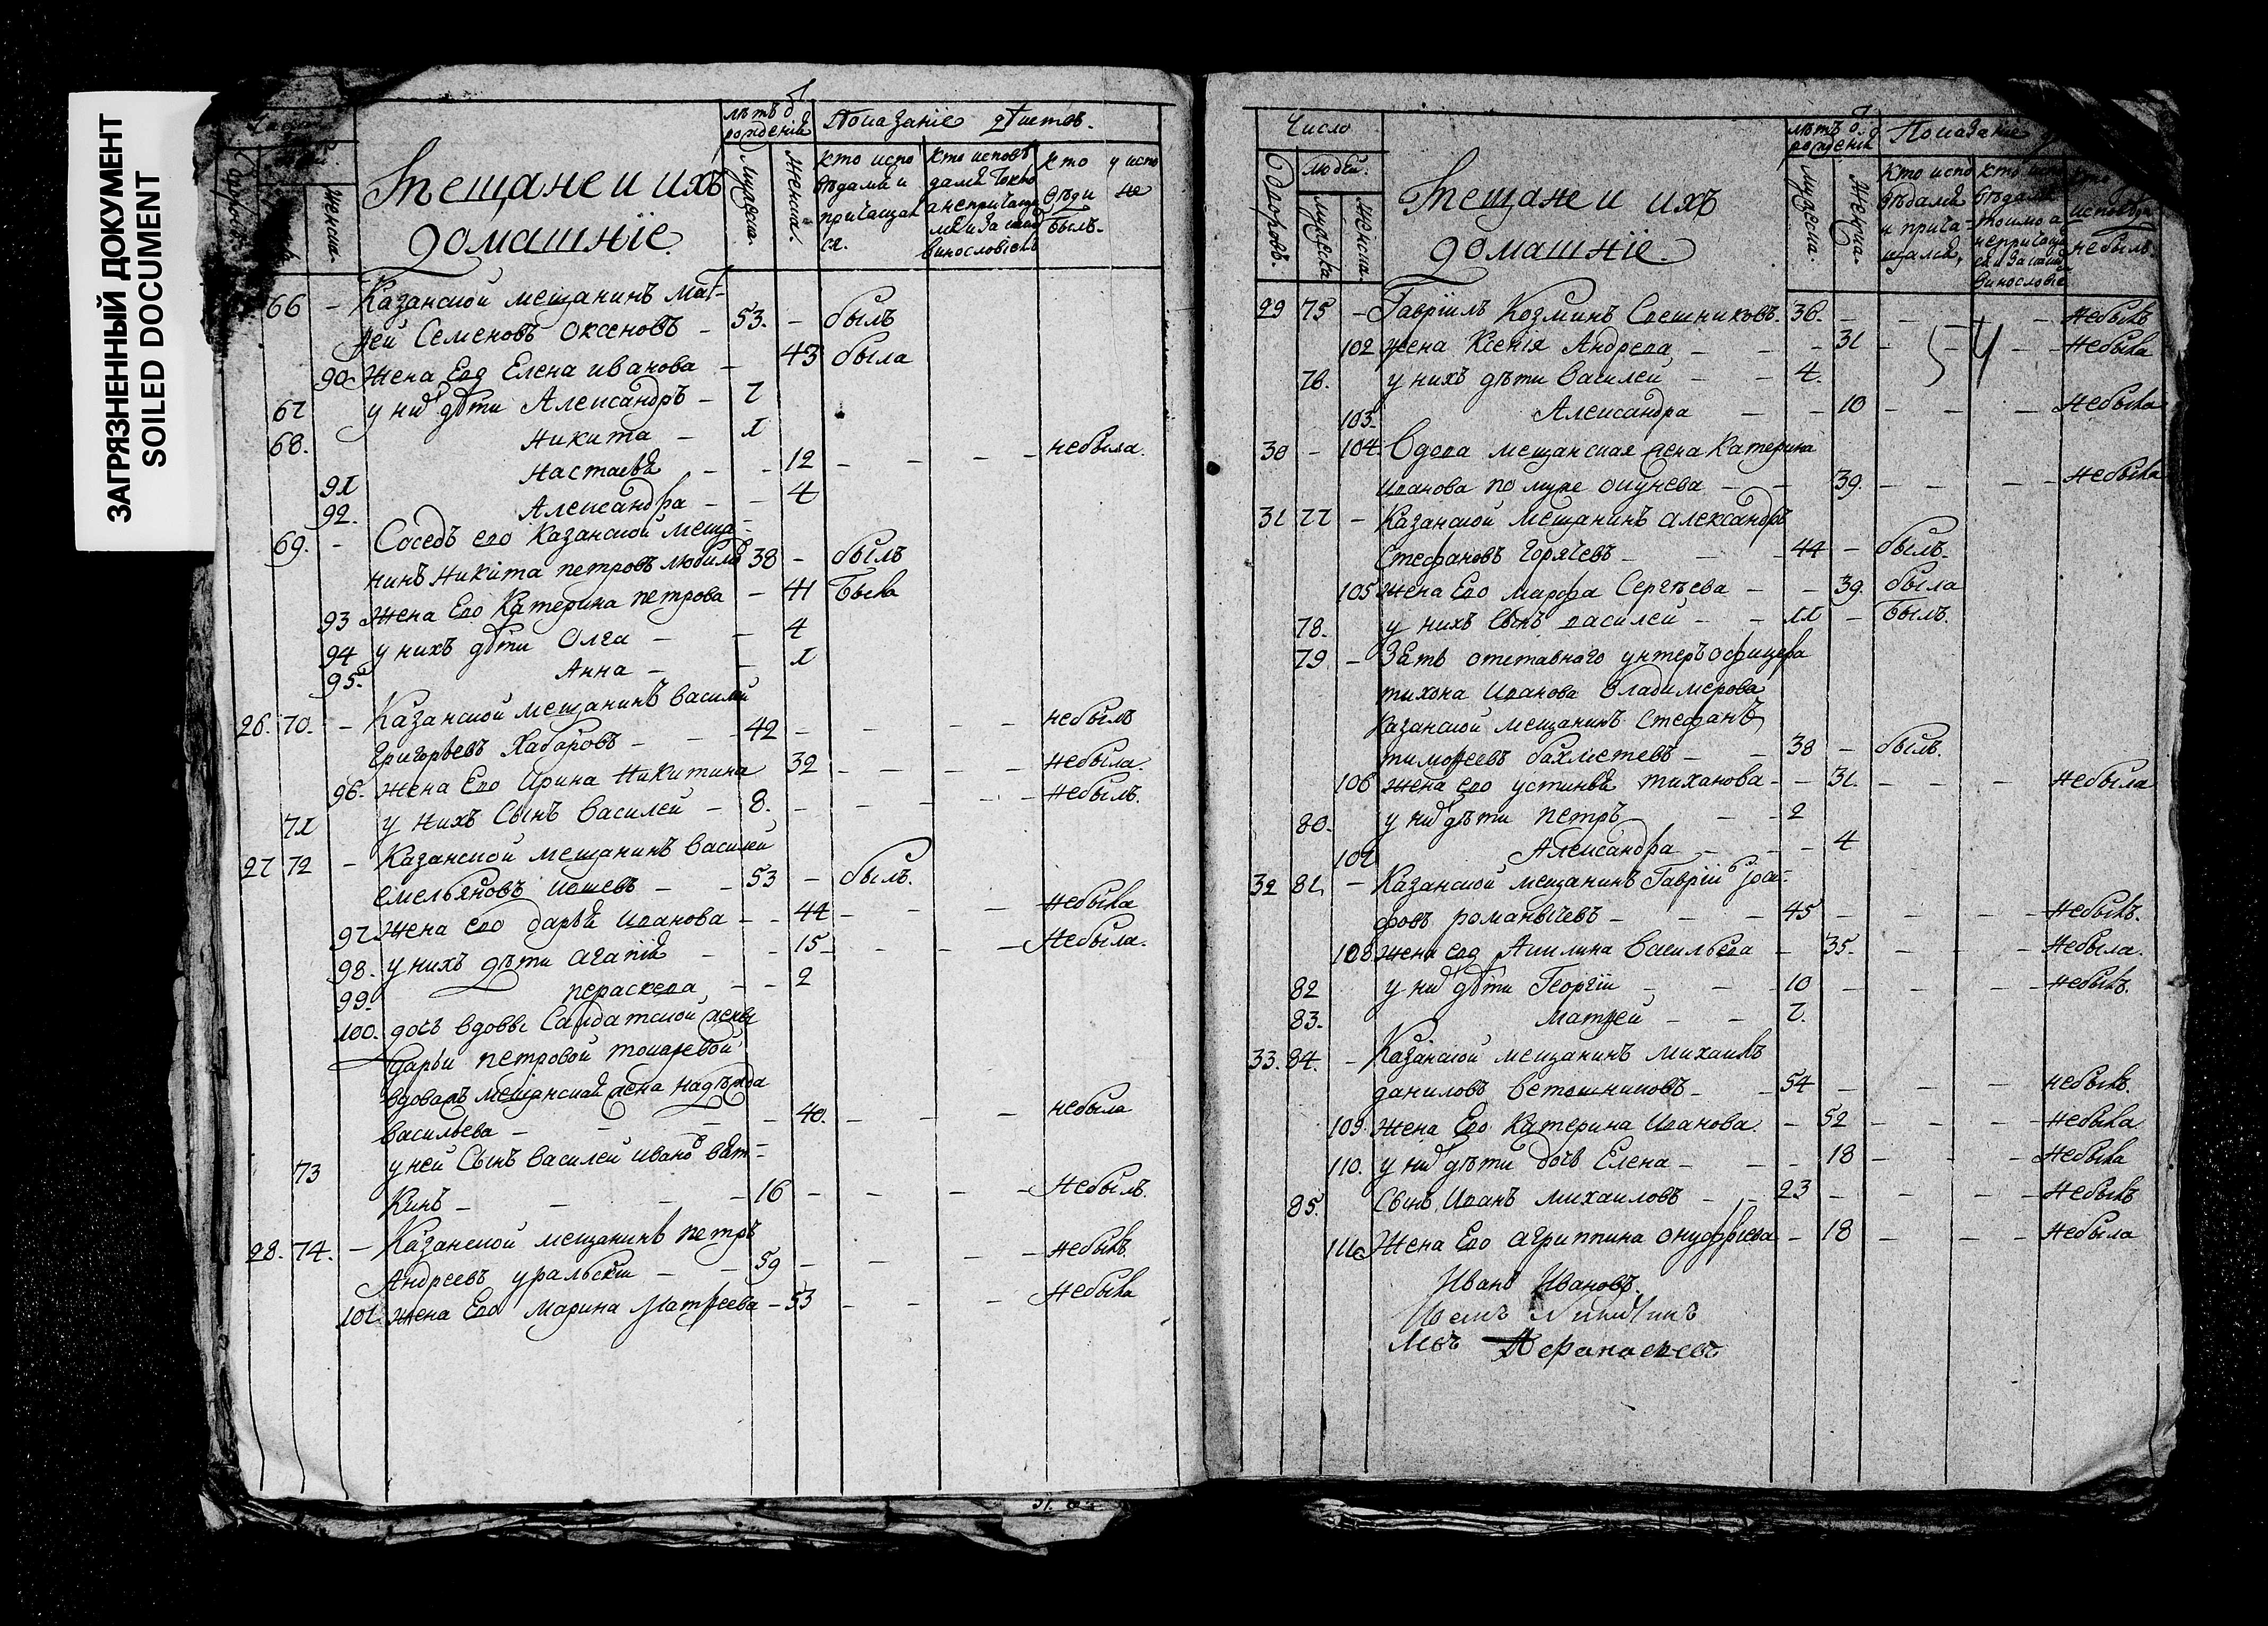 ЗАГРЯЗНЕННЫЙ ДОКУМЕНТ
SOILED DOCUMENT
лѣтъ ѿ рожденія
Показаніе
Мещане и ихъ домашніе
мужеска.
Женска.
кто исповѣдался и причащался.
кто у исповѣди не былъ.
66 - Казанской мещанинъ Мат-
ѳей Семеновъ Оксеновъ - 53. - былъ
90 Жена Его Елена иванова - 43 была
67 у них дѣти Александръ - 7
68. Никита - 1
91 Настасья - - 12 - - - небыла.
92. Александра - - 4
69. - Соседъ его Казанской меща-
нинъ Никита петровъ 38 - былъ
93 Жена Его Катерина петрова - 41 Была
94 у нихъ дѣти Олга - - 4
95. Анна - - 1
26. 70. - Казанской мещанинъ Василей
Григорьевъ Хабаровъ - - - 42 - - - - небылъ
96. Жена Его Ирина Никитина 32 - - - - небыла.
71 у нихъ Сынъ Василей - 8. - - - - - небылъ.
27 72 - Казанской мещанинъ Василей
Емельяновъ - - 53 - былъ.
97 Жена его дарья Иванова - - 44 - - - небыла
98. у нихъ дѣти агапія - - 15 - - - - Небыла.
99. пераскева - - 2
100. дочь вдовы Салдатской жены
дарьи петровой
вдова мещанская жена надѣжда
Васильева - - - - 40. - - - небыла
73 у ней Сынъ Василей Ивановъ Вят-
кинъ - - - - 16 - - - - Небылъ.
28. 74. - Казанской мещанинъ петръ
Андреевъ уральскій - - 59 - - - - небылъ.
101. жена Его Марина Матѳеева - 53 - - - небыла
Число
Дворовъ.
людей.
мужеска
женска.
Мещане и ихъ домашніе.
лѣтъ ѿ рожденія
мужеска.
Женска.
Показаніе
кто исповѣдался и причащался,
небылъ
54
29 75 - Гавріилъ Козминъ Свешниковъ. 36. - - - - Небылъ
102 жена Ксенія Андреева - - - 31 - - - - Небыла
76. у нихъ дѣти Василей - - 4.
103. Александра - - 10 - - - Небыла
30 - 104. Вдова мещанская жена Катерина
Иванова по муже окунева - - 39. - - - - Небыла
31 77 - Казанской Мещанинъ александръ
Стефановъ Горячевъ - - - 44 - былъ.
105 Жена Его Марфа Сергѣева - - 39. была
78. у нихъ Сынъ василей - - 11 - Былъ.
79 - Зять отставного унтеръ офицера
тихона Иванова Владимерова
Казанской мещанинъ Стефанъ
тимофеевъ бахметевъ - - 38 - былъ.
106 Жена его устинья тиханова - - 31. - - - Небыла
80. у них дѣти петръ - - 2
107 Александра - - - 4
32 81 - Казанской мещанинъ Гавріи
фовъ романычевъ - - - 45 - - - - Небылъ.
108 Жена его Акилина Васильева - 35. - - - Небыла.
82 у них дѣти Георгіи - - - 10 - - - - Небылъ.
83. Матѳей - - 7.
33. 84. - Казанской мещанинъ михаилъ
даниловъ Ветошниковъ - - 54 - - - небылъ.
109. Жена Его Катерина Иванова. - 52 - - - Небыла
110. у них дѣти дочь Елена - - - 18 - - - Небыла
85. Сынъ Иванъ михаиловъ - - 23 - - - - Небылъ
111 Жена Его агриппина онуфріева - 18 - - - Небыла
Иванъ Ивановъ.